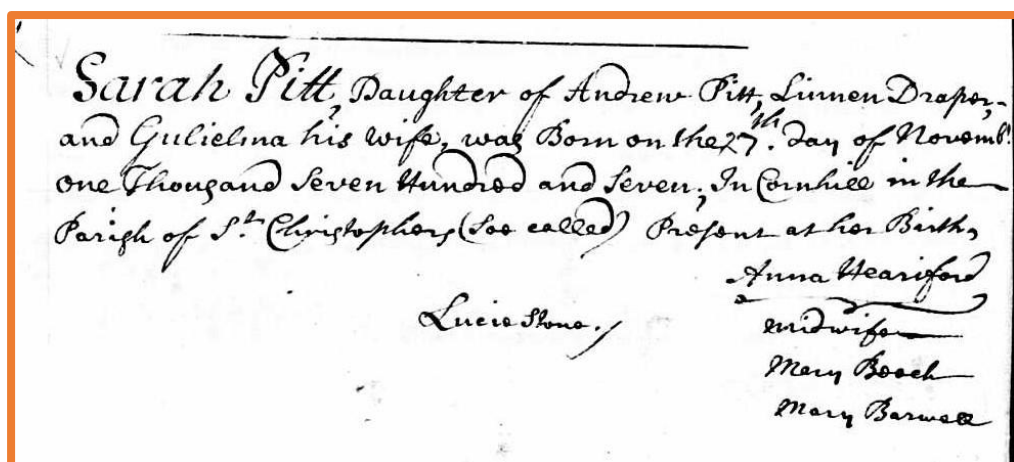 Sarah Pitt, Daughter of Andrew Pitt, Linnen Draper,
and Gulielma his wife, was Born on the 27th. day of Novembr.
one Thousand Seven Hundred and Seven; In Cornhill in the
Parish of St. Christophers (soe called) Present at her Birth,
Anna Heariford
Lucie Stone.
midwife
Mary Beach
Mary Barwell